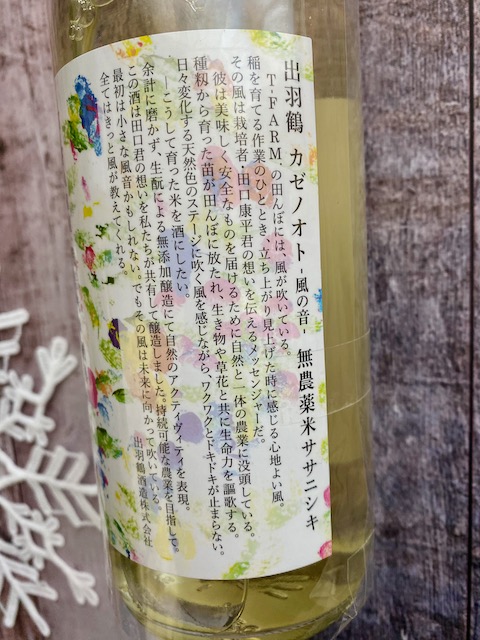 出羽鶴 カゼノオト -風の音- 無農薬米ササニシキ
T-FARMの田んぼには、風が吹いている。
稲を育てる作業のひととき、立ち上がり見上げた時に感じる心地よい風。
その風は栽培者・田口康平君の想いを伝えるメッセンジャーだ。
彼は美味しく安全なものを届けるために自然と一体の農業に没頭している。
種籾から育った苗が田んぼに放たれ、生き物や草花と共に生命力を謳歌する。
日々変化する天然色のステージに吹く風を感じながら、ワクワクとドキドキが止まらない。
―こうして育った米を酒にしたい。
余計に磨かず、生酛による無添加醸造にて自然のアクティヴィティを表現。
この酒は田口君の想いを私たちが共有して醸造しました。持続可能な農業を目指して。
最初は小さな風音かもしれない。でもその風は未来に向かって吹いている。
全てはきっと風が教えてくれる。
出羽鶴酒造株式会社